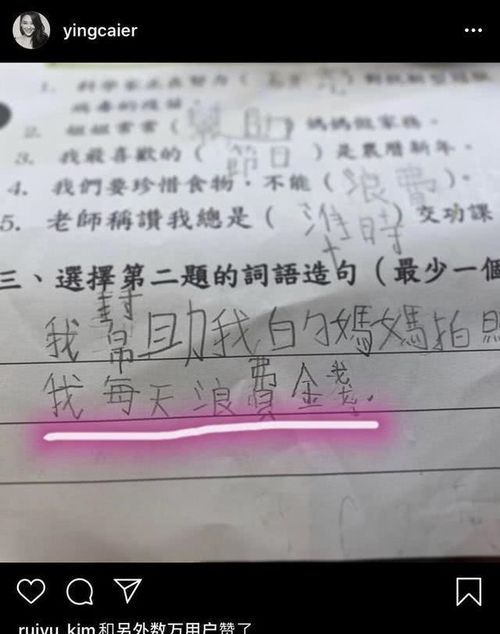 yingcaier
1. 科學家正在努力（
2. 姐姐常常（幫助）媽媽做家務。
3. 我最喜歡的（節日）是農曆新年。
4. 我們要珍惜食物，不能（浪費）。
5. 老師稱讚我總是（準時）交功課
三、選擇第二題的詞語造句（最少一個
我幫助我的媽媽拍照
我每天浪費金錢。
ruiyu_kim和另外数万用户赞了